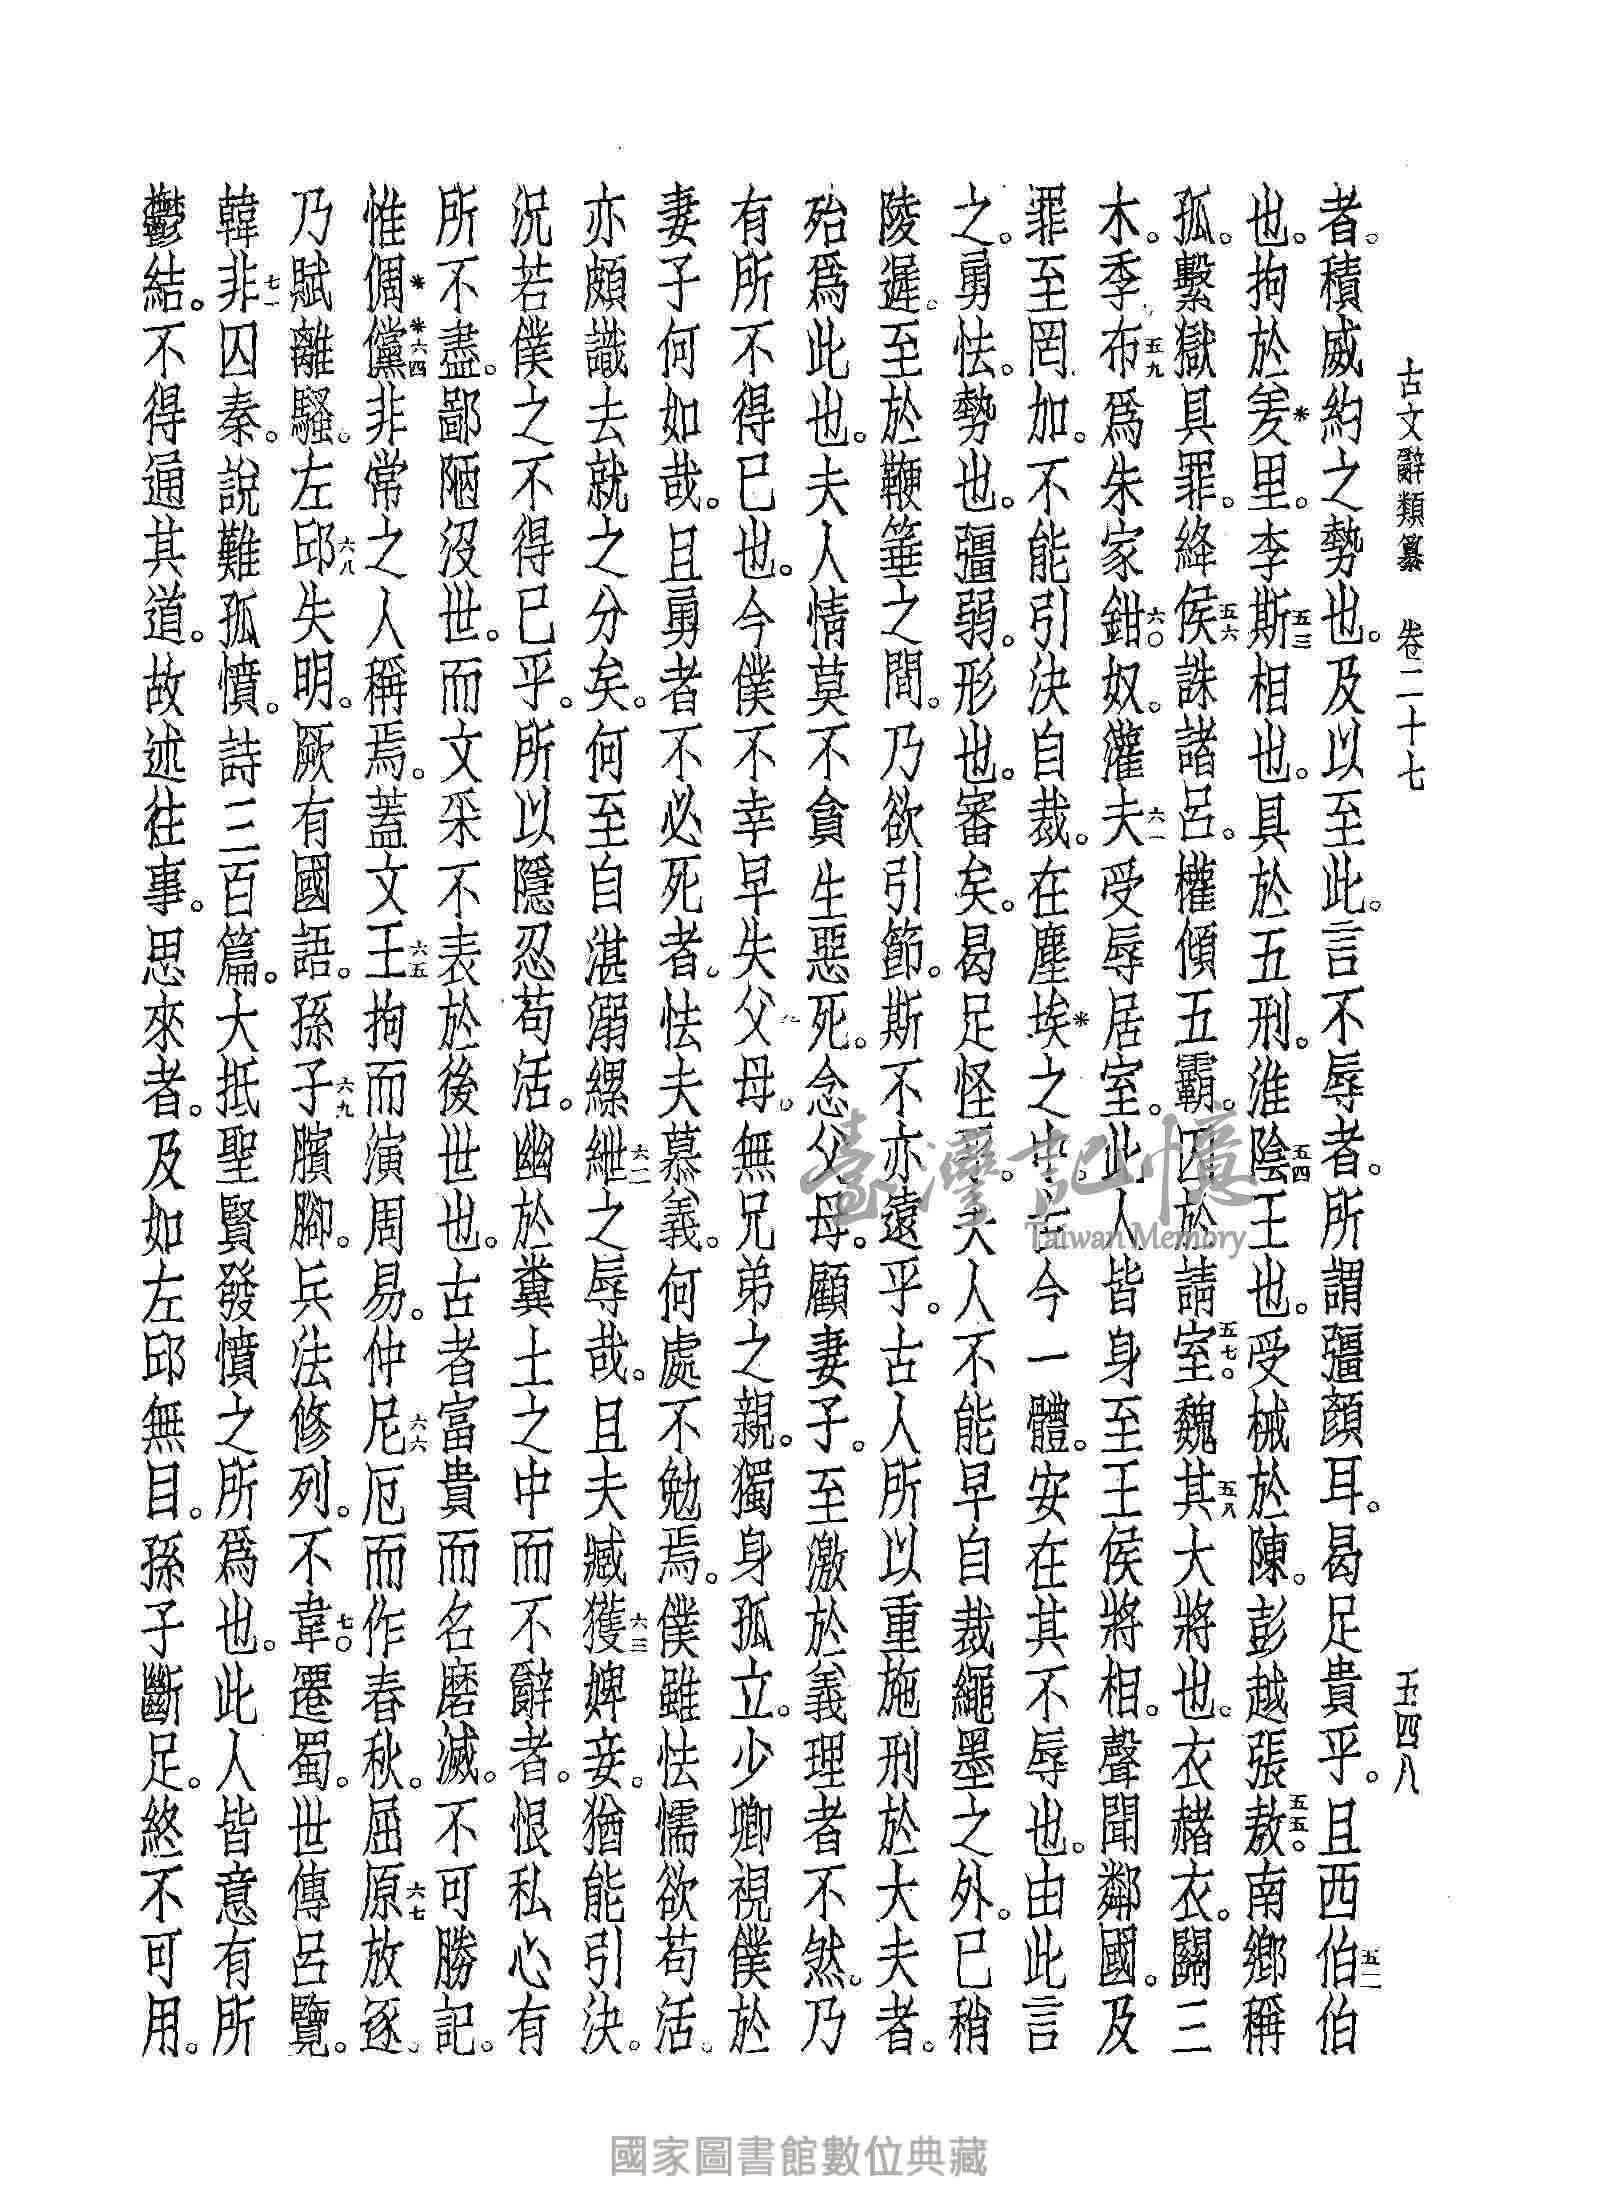 古文辭類纂　卷二十七　五四八
者。積威約之勢也。及以至此。言不辱者。所謂彊顏耳。曷足貴乎。且西伯五二伯
也。拘於羑*里。李斯五三相也。具於五刑。淮陰五四王也。受械於陳。彭越張敖五五。南鄉稱
孤。繫獄具罪。絳侯五六誅諸呂。權傾五霸。囚於請室五七。魏其五八大將也。衣赭衣。關三
木。季布五九爲朱家鉗六〇奴。灌夫六一受辱居室。此人皆身至王侯將相。聲聞鄰國。及
罪至罔加。不能引決自裁。在塵埃*之中。古今一體。安在其不辱也。由此言
之。勇怯。勢也。彊弱。形也。審矣。曷足怪乎。夫人不能早自裁繩墨之外。已稍
陵遲。至於鞭箠之間。乃欲引節。斯不亦遠乎。古人所以重施刑於大夫者。
殆爲此也。夫人情莫不貪生惡死。念父母。顧妻子。至激於義理者不然。乃
有所不得已也。今僕不幸早失父母。無兄弟之親。獨身孤立。少卿視僕於
妻子何如哉。且勇者不必死者。怯夫慕義。何處不勉焉。僕雖怯懦欲苟活。
亦頗識去就之分矣。何至自湛溺縲紲六二之辱哉。且夫臧獲六三婢妾。猶能引決。
況若僕之不得已乎。所以隱忍苟活。幽於糞土之中而不辭者。恨私心有
所不盡。鄙陋沒世。而文采不表於後世也。古者富貴而名磨滅。不可勝記。
惟倜*儻*六四非常之人稱焉。蓋文王六五拘而演周易。仲尼六六厄而作春秋。屈原六七放逐。
乃賦離騷。左邱六八失明。厥有國語。孫子六九臏腳。兵法修列。不韋七〇遷蜀。世傳呂覽。
韓非七一囚秦。說難孤憤。詩三百篇。大抵聖賢發憤之所爲也。此人皆意有所
鬱結。不得通其道。故述往事。思來者。及如左邱無目。孫子斷足。終不可用。
臺灣記憶
Taiwan Memory
國家圖書館數位典藏